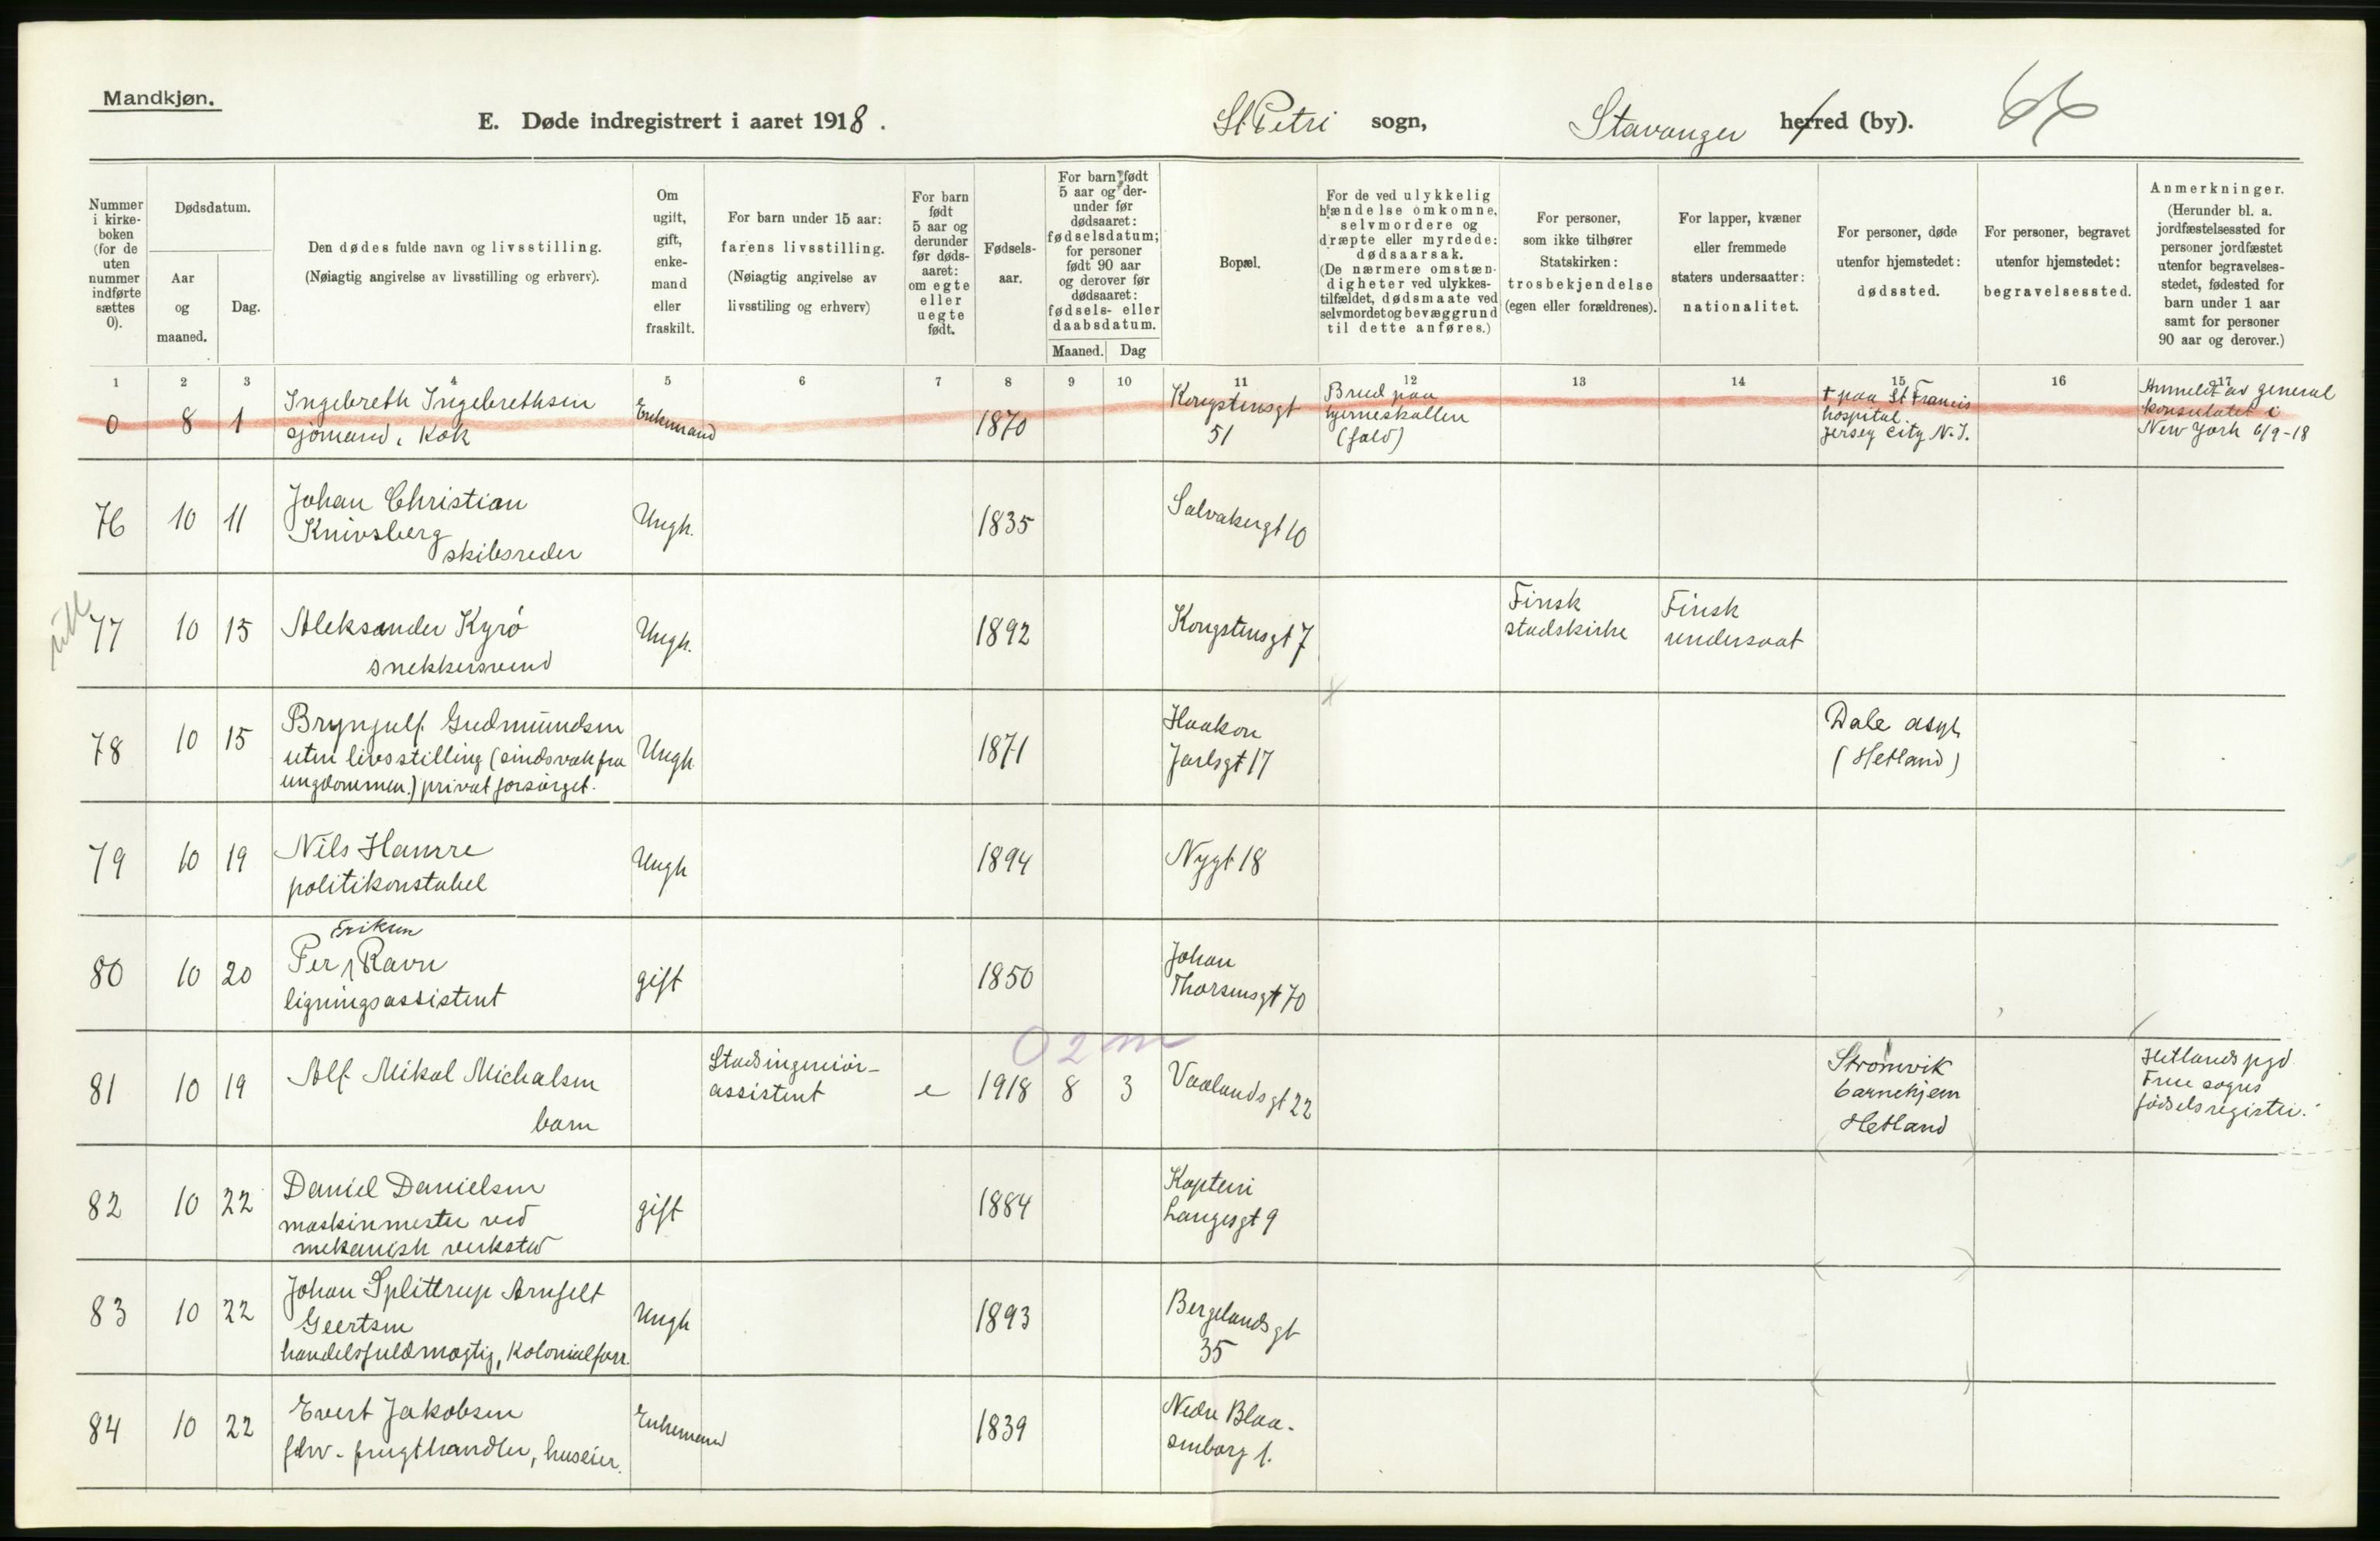 Mandkjøn.
E. Døde indregistrert i aaret 1918.
St. Petri sogn,
Stavanger herred (by).
66
Nummer i kirke-boken (for de uten nummer indførte sættes 0).
Dødsdatum.
Aar og maaned.
Dag.
Den dødes fulde navn og livsstilling.
(Nøiagtig angivelse av livsstilling og erhverv).
Om ugift, gift, enke-mand eller fraskilt.
For barn under 15 aar:
farens livsstilling.
(Nøiagtig angivelse av
livsstiling og erhverv)
For barn født 5 aar og derunder før døds-aaret: om egte eller uegte født.
Fødsels-aar.
For barn født 5 aar og der-under før dødsaaret: fødselsdatum; for personer født 90 aar og derover før dødsaaret: fødsels- eller daabsdatum.
Maaned.
Dag
Bopæl.
For de ved ulykkelig hændelse omkomne, selvmordere og dræpte eller myrdede: dødsaarsak. (De nærmere omstæn-digheter ved ulykkes-tilfældet, dødsmaate ved selvmordet og bevæggrund til dette anføres.)
For personer, som ikke tilhører Statskirken: trosbekjendelse (egen eller forældrenes).
For lapper, kvæner eller fremmede staters undersaatter: nationalitet.
For personer, døde utenfor hjemstedet: dødssted.
For personer, begravet utenfor hjemstedet: begravelsessted.
Anmerkninger.
(Herunder bl. a. jordfæstelsessted for personer jordfæstet utenfor begravelses-stedet, fødested for barn under 1 aar samt for personer 90 aar og derover.)
1 2 3 4 5 6 7 8 9 10 11 12 13 14 15 16 17
0 8 1 Ingebreth Ingebrethsen
sjømand, Kok
Enkemand 1870
Kongstensgt
51
Brud paa
hjerneskallen
(fald)
† paa St Francis
hospital
Jersey City N.J.
Anmeldt av general
konsulatet i
New York 6/9-18
76 10 11 Johan Christian
Knivsberg
skibsreder
Ungk. 1835 Solvabergt 10
77 10 15 Aleksander Kyrö
snekkersvend
Ungk. 1892 Kongstensgt 7
Finsk
stadskirke
Finsk
undersaat
78 10 15 Brynjulf Gudmundsen
uten livsstilling (sindsvak fra
ungdommen.) privat forsørget.
Ungk 1871
Haakon
Jarlsgt 17
Dale asyl
(Hetland)
79 10 19 Nils Hamre
politikonstabel
Ungk 1894 Nygt 18
Eriksen
80 10 20 Per Ravn
ligningsassistent
gift 1850
Johan
Thorsensgt 70
0 2 m
81 10 19 Alf Mikal Michalsen
barn
Stadsingeniør-
assistent
e 1918 8 3 Vaalandsgt 22
Strømvik
barnehjem
Hetland
Hetlands pgd
Frue sogns
fødselsregister.
82 10 22 Daniel Danielsen
maskinmester ved
mekanisk verksted
gift 1884
Kaptein
Langesgt 9
83 10 22 Johan Splittrup Arnfelt
Geertsen
handelsfuldmægtig, Kolonialforr.
Ungk 1893
Bergelandsgt
35
84 10 22 Evert Jakobsen
forv. frugthandler, huseier.
Enkemand 1839
Nedre Blaa-
senborg 1.